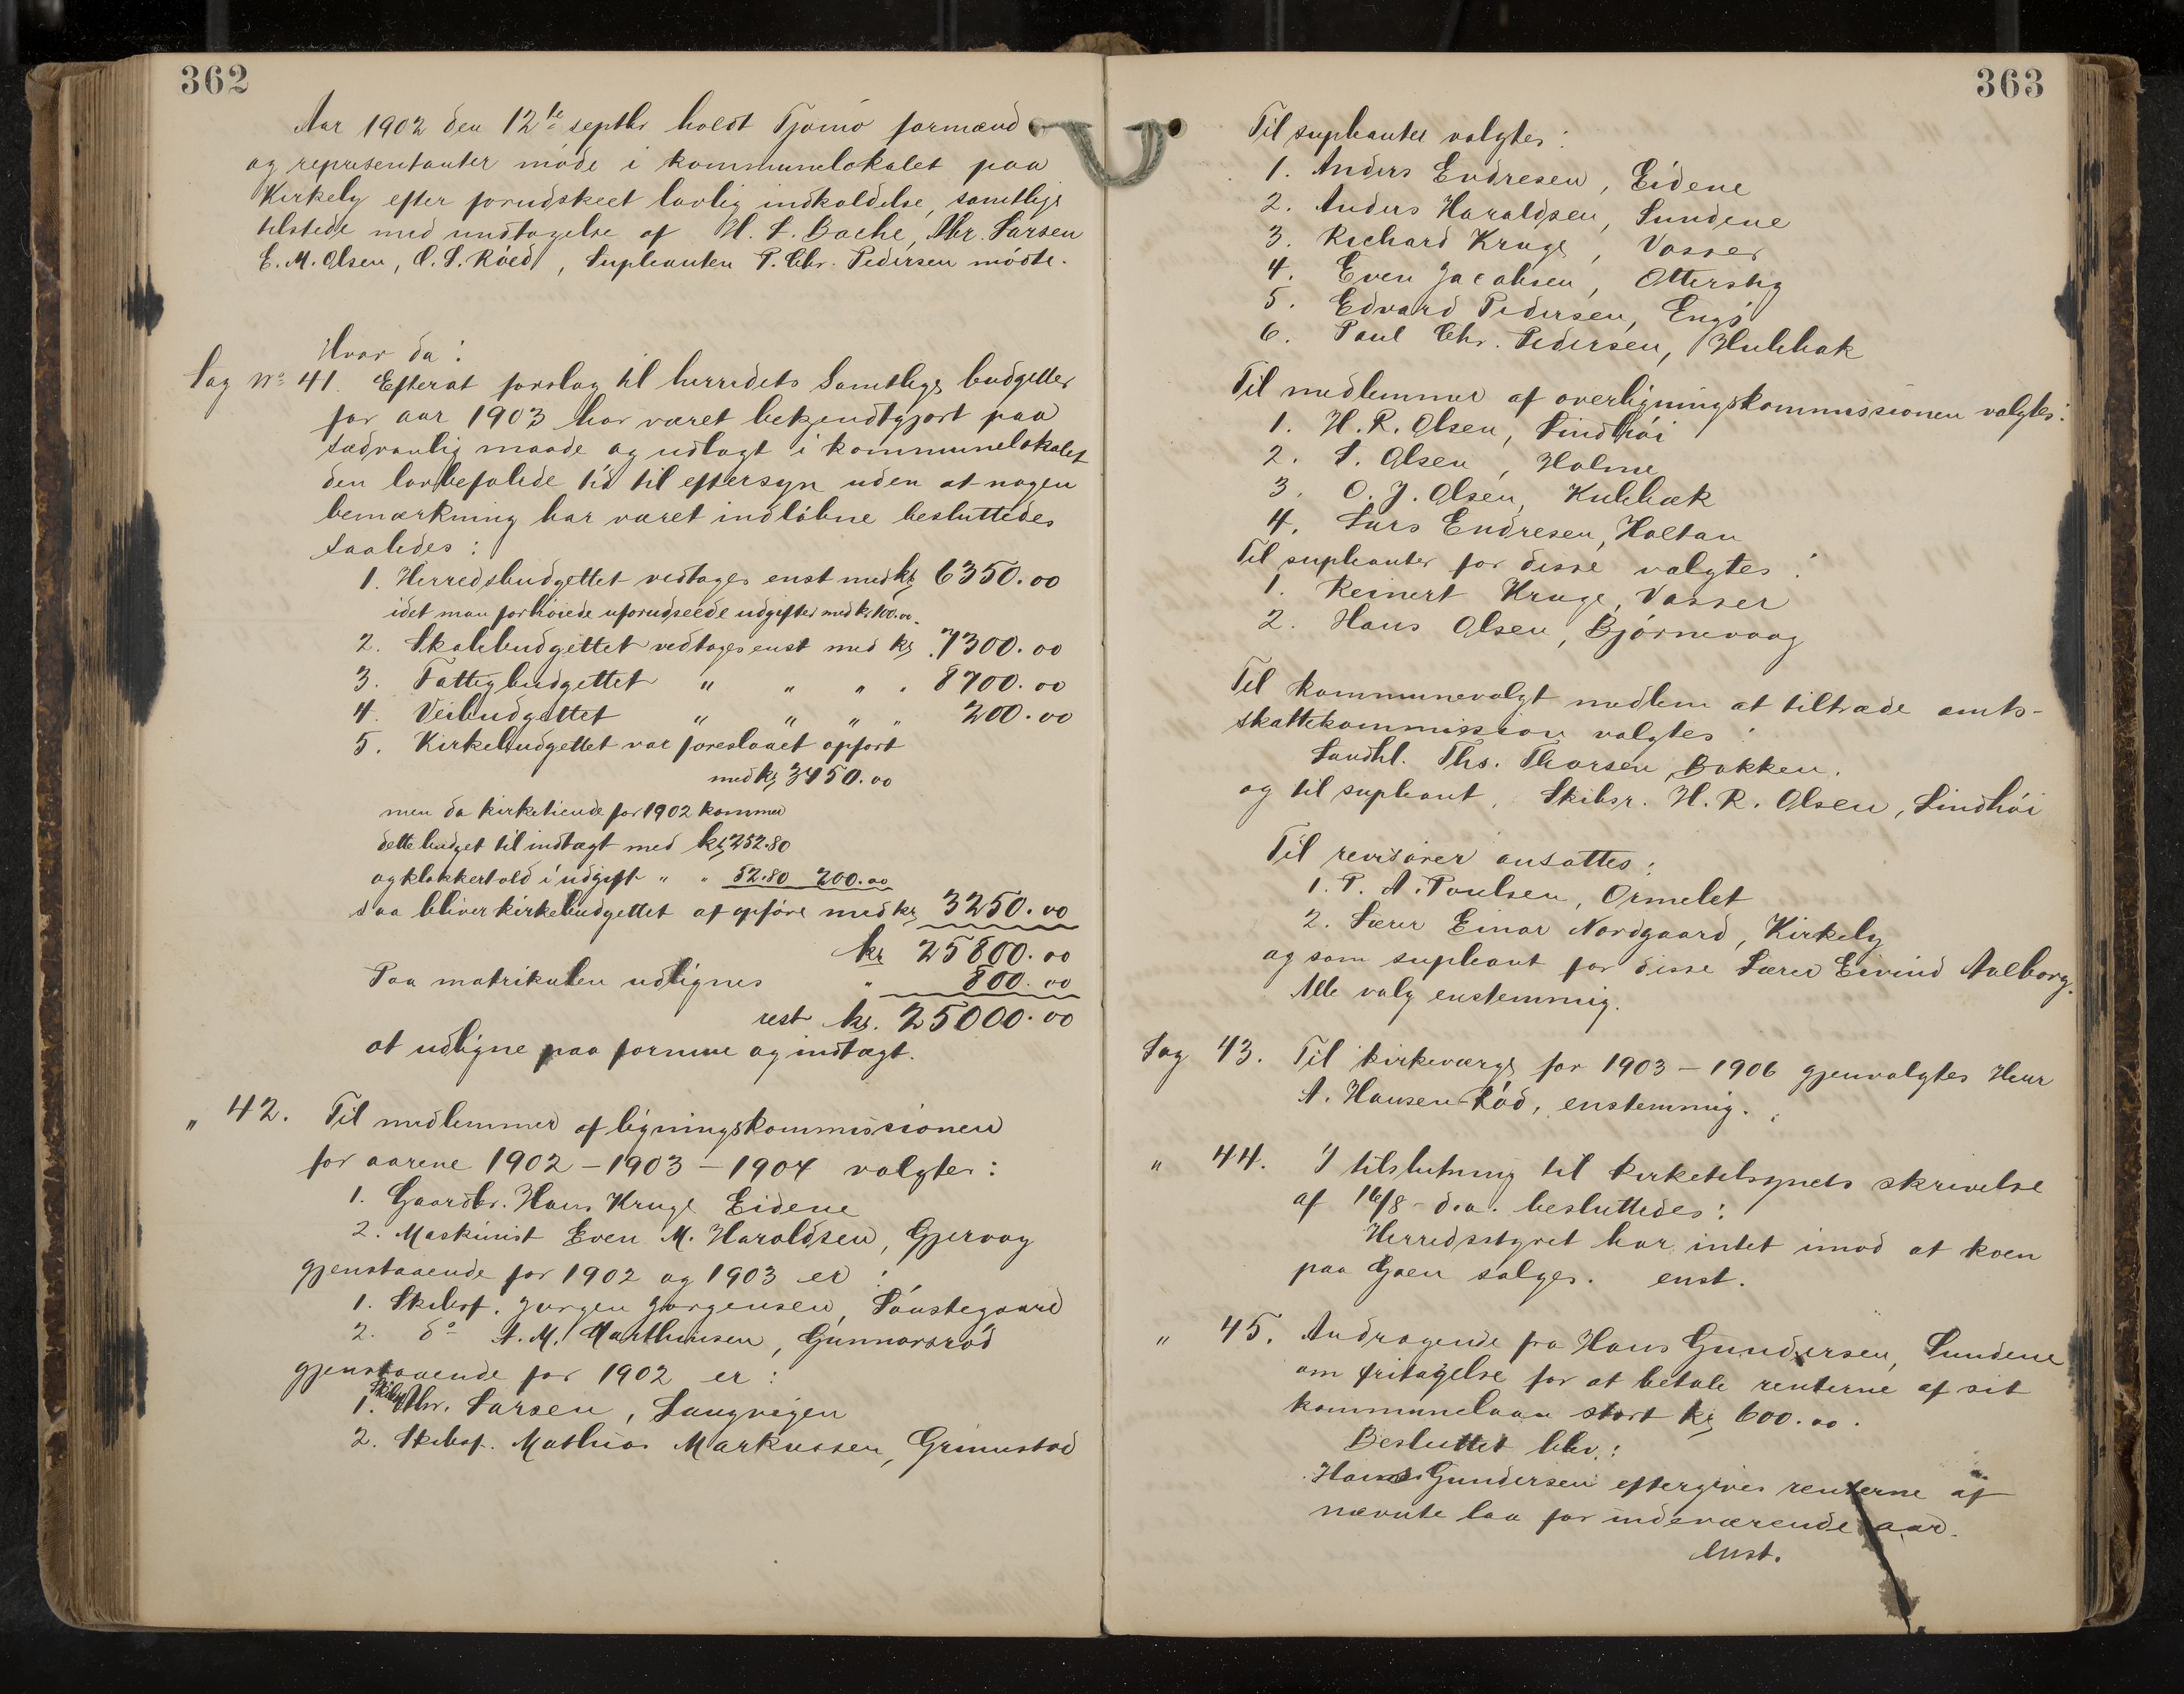 362
Aar 1902 den 12te septbr holdt Tjømø formænd
og representanter møde i kommunelokalet paa
Kirkely efter forudskeet lovlig indkaldelse, samtlige
tilstede med undtagelse af H. L. Bache, Abr. Larsen
E. M. Olsen, O. L. Røed, Supleanten P. Chr. Pedersen mødte.
Hvor da:
Sag No 41. Efterat forslag til herredets samtlige budgetter
for aar 1903 har været bekjendtgjort paa
sædvanlig maade og udlagt i kommunelokalet
den lovbefalede tid til eftersyn uden at nogen
bemærkning har været indløbne besluttedes
saaledes:
1. Herredsbudgettet vedtages enst med kr 6350.00
idet man forhøiede uforudseede udgifter med kr 100.00.
2. Skolebudgettet vedtages enst med kr 7300.00
3. Fattigbudgettet " " " " 8700.00
4. Veibudgettet " " " " 200.00
5. Kirkebudgettet var foreslaaet opført
med kr 3450.00
men da kirketiende for 1902 kommer
dette budget til indtægt med kr 252.80
og klokkertold i udgift " " 52.80 200.00
saa bliver kirkebudgettet at opføre med kr 3250.00
kr 25800.00
Paa matrikulen udlignes " 800.00
rest kr. 25000.00
at udligne paa formue og indtægt.
" 42. Til medlemmer af ligningskommissionen
for aarene 1902 – 1903 – 1904 valgtes:
1. Gaardbr. Hans Kruge Eidene
2. Maskinist Even M. Haraldsen, Gjervaag
gjenstaaende for 1902 og 1903 er:
1. Skibsf. Jørgen Jørgensen, Sønstegaard
2. do A. M. Marthinsen, Gunnarsrød
gjenstaaende for 1902 er:
1. Skibsf. Abr. Larsen, Langvigen
2. Skibsf. Mathias Markussen, Grimestad
363
Til supleanter valgtes:
1. Anders Endresen, Eidene
2. Anders Haraldsen, Sundene
3. Richard Kruge, Vasser
4. Even Jacobsen, Otterstig
5. Edvard Pedersen, Engø
6. Paul Chr. Pedersen, Kulebæk
Til medlemmer af overligningskommissionen valgtes:
1. H. R. Olsen, Lindhøi
2. S. Olsen, Holme
3. O. J. Olsen, Kulebæk
4. Lars Endresen, Haltan
Til supleanter for disse valgtes:
1. Reinert Kruge, Vasser
2. Hans Olsen, Bjørnevaag
Til kommunevalgt medlem at tiltræde amts-
skattekommission valgtes:
Landhl. Ths. Thorsen, Bakken.
og til supleant, Skibsr. H. R. Olsen, Lindhøi
Til revisorer ansattes:
1. P. A. Poulsen, Ormelet
2. Lærer Einar Nordgaard, Kirkely
og som supleant for disse Lærer Eivind Aalborg.
Alle valg enstemmig.
Sag 43. Til kirkeværge for 1903 – 1906 gjenvalgtes Herr
A. Hansen-Rød, enstemmig.
" 44. I tilslutning til kirketilsynets skrivelse
af 16/8 d.a. besluttedes:
Herredsstyret har intet imod at koen
paa Gaen salges. enst.
" 45. Andragende fra Hans Gundersen, Sundene
om fritagelse for at betale renterne af sit
kommunelaan stort kr 600.00.
Besluttet blev:
Hans Gundersen eftergives renterne af
nævnte laa for indeværende aar.
enst.